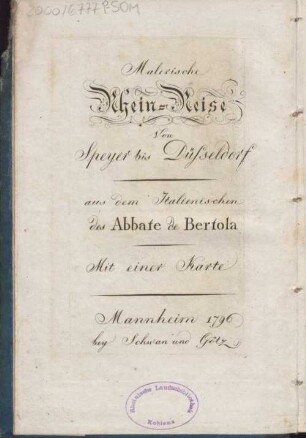 2000/6777 RSOM
Malerische
Rhein-Reise
Von
Speyer bis Düsseldorf
aus dem Italienischen
des Abbate de Bertola
Mit einer Karte
Mannheim 1796
bey Schwan und Götz
Rheinische Landesbibliothek
Koblenz